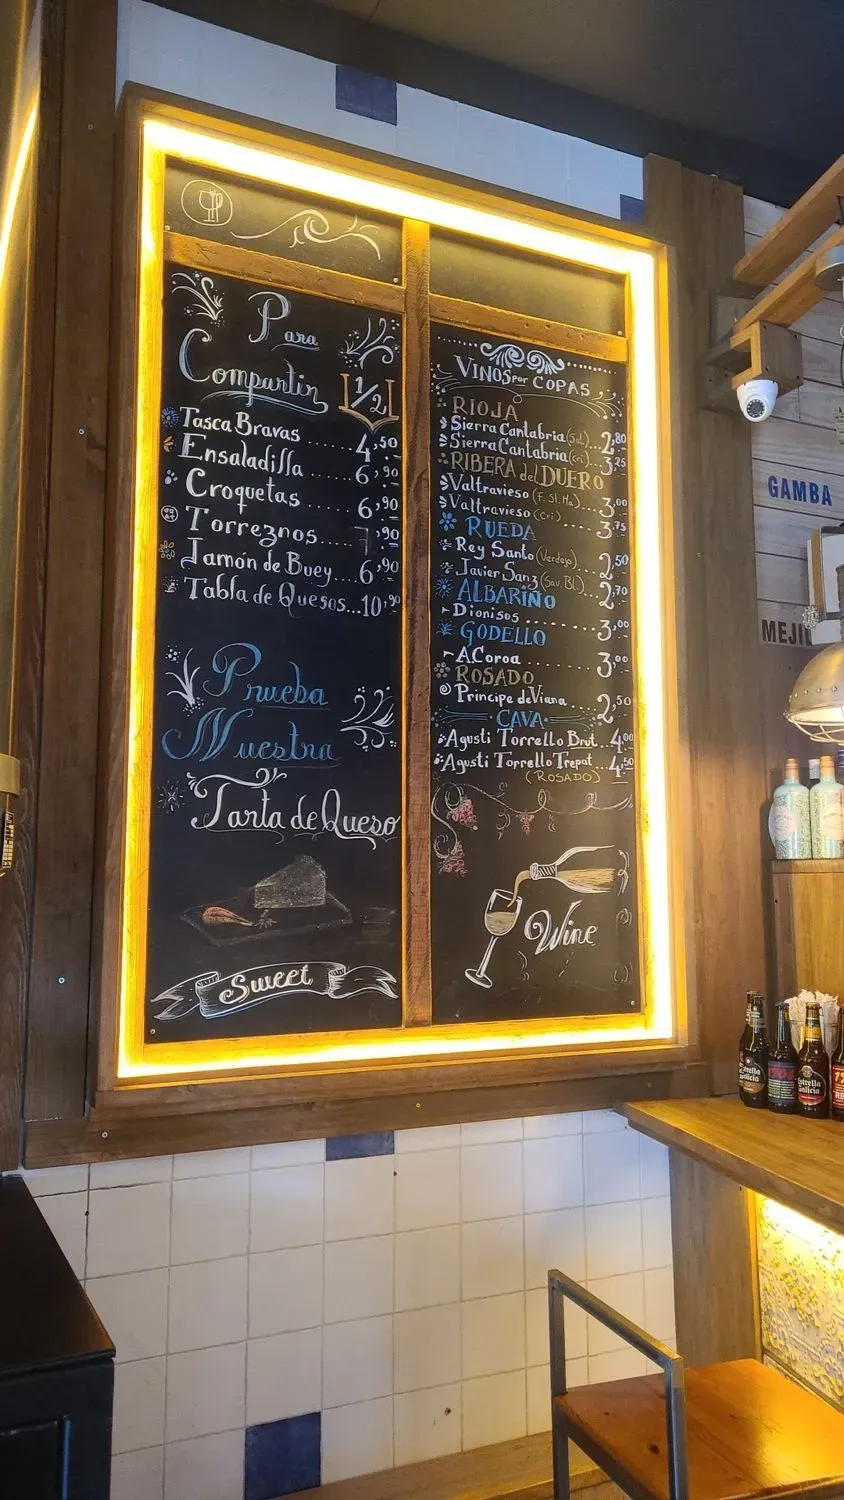 Para
Compartir 1/2
Tasca Bravas ...... 4,50
Ensaladilla ...... 6,90
Croquetas ...... 6,90
Torreznos ...... ,90
Jamón de Buey .... 6,90
Tabla de Quesos... 10,90
Prueba
Nuestra
Tarta de Queso
Sweet
VINOS por COPAS
RIOJA
Sierra Cantabria (Sel) .. 2,80
Sierra Cantabria (cri) ... 3,25
RIBERA del DUERO
Valtravieso (F. St. Ma) ... 3,00
Valtravieso (Cri) ..... 3,75
RUEDA
Rey Santo (Verdejo) .. 2,50
Javier Sanz (Sav. Bl.) .. 2,70
ALBARIÑO
Dionisos ........ 3,00
GODELLO
A Coroa ........ 3,00
ROSADO
Principe de Viana ...... 2,50
CAVA
Agusti Torrello Brut .. 4,00
Agusti Torrello Trepat ... 4,50
(ROSADO)
Wine
GAMBA
MEJIL
Estrella
Galicia
Estrella
Galicia